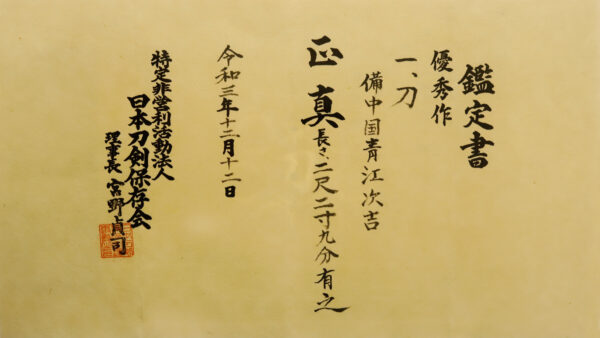 鑑定書
優秀作
一、刀
備中国青江次吉
正真
長さ二尺二寸九分有之
令和三年十二月十二日
特定非営利活動法人
日本刀剣保存会
理事長 宮野貞司